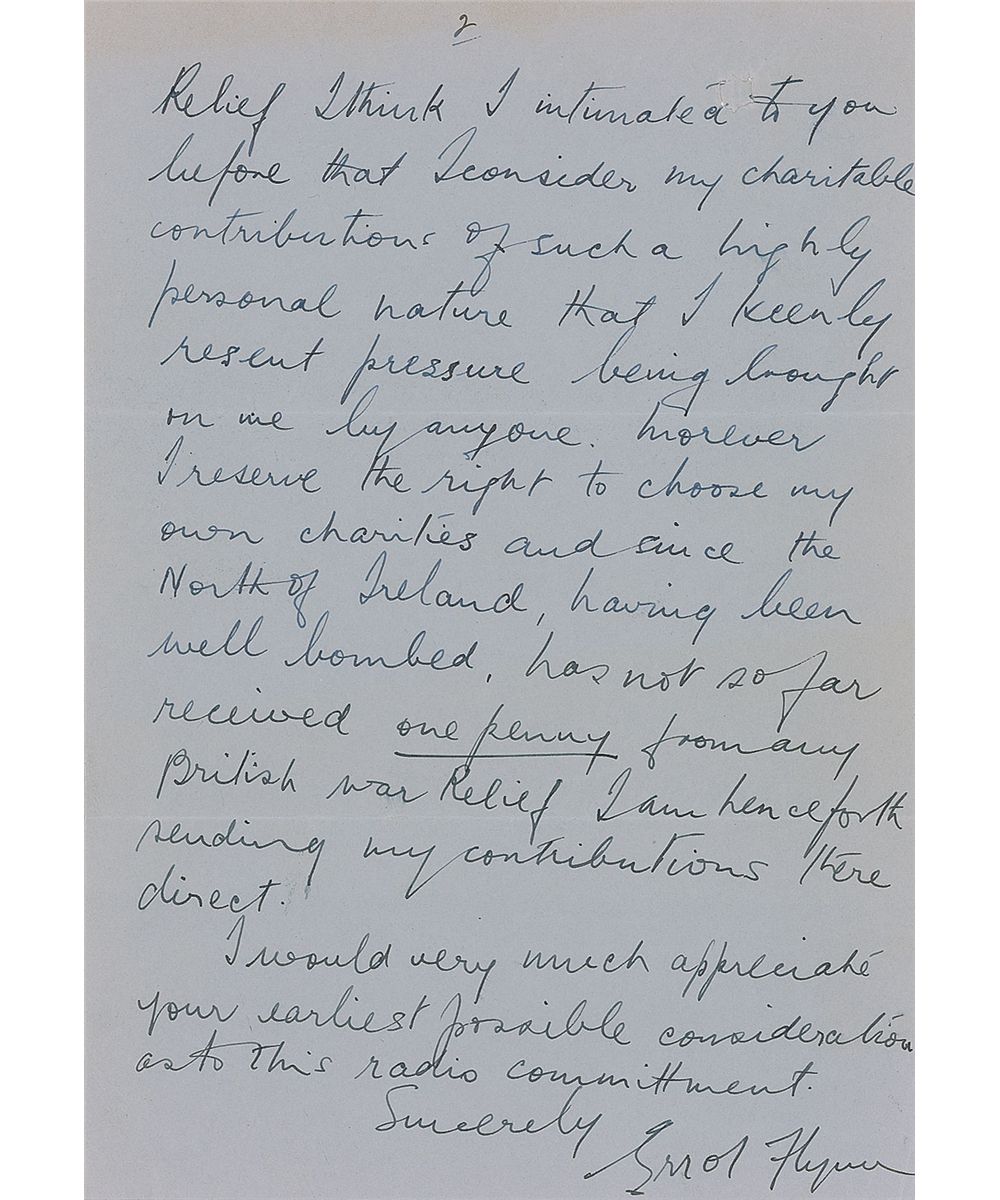 2
Relief I think I intimated to you
before that I consider my charitable
contributions of such a highly
personal nature that I keenly
resent pressure being brought
on me by anyone. Morever
I reserve the right to choose my
own charities and since the
North of Ireland, having been
well bombed, has not so far
received one penny from any
British war Relief I am henceforth
sending my contributions there
direct.
I would very much appreciate
your earliest possible consideration
as to this radio committment.
Sincerely
Errol Flynn